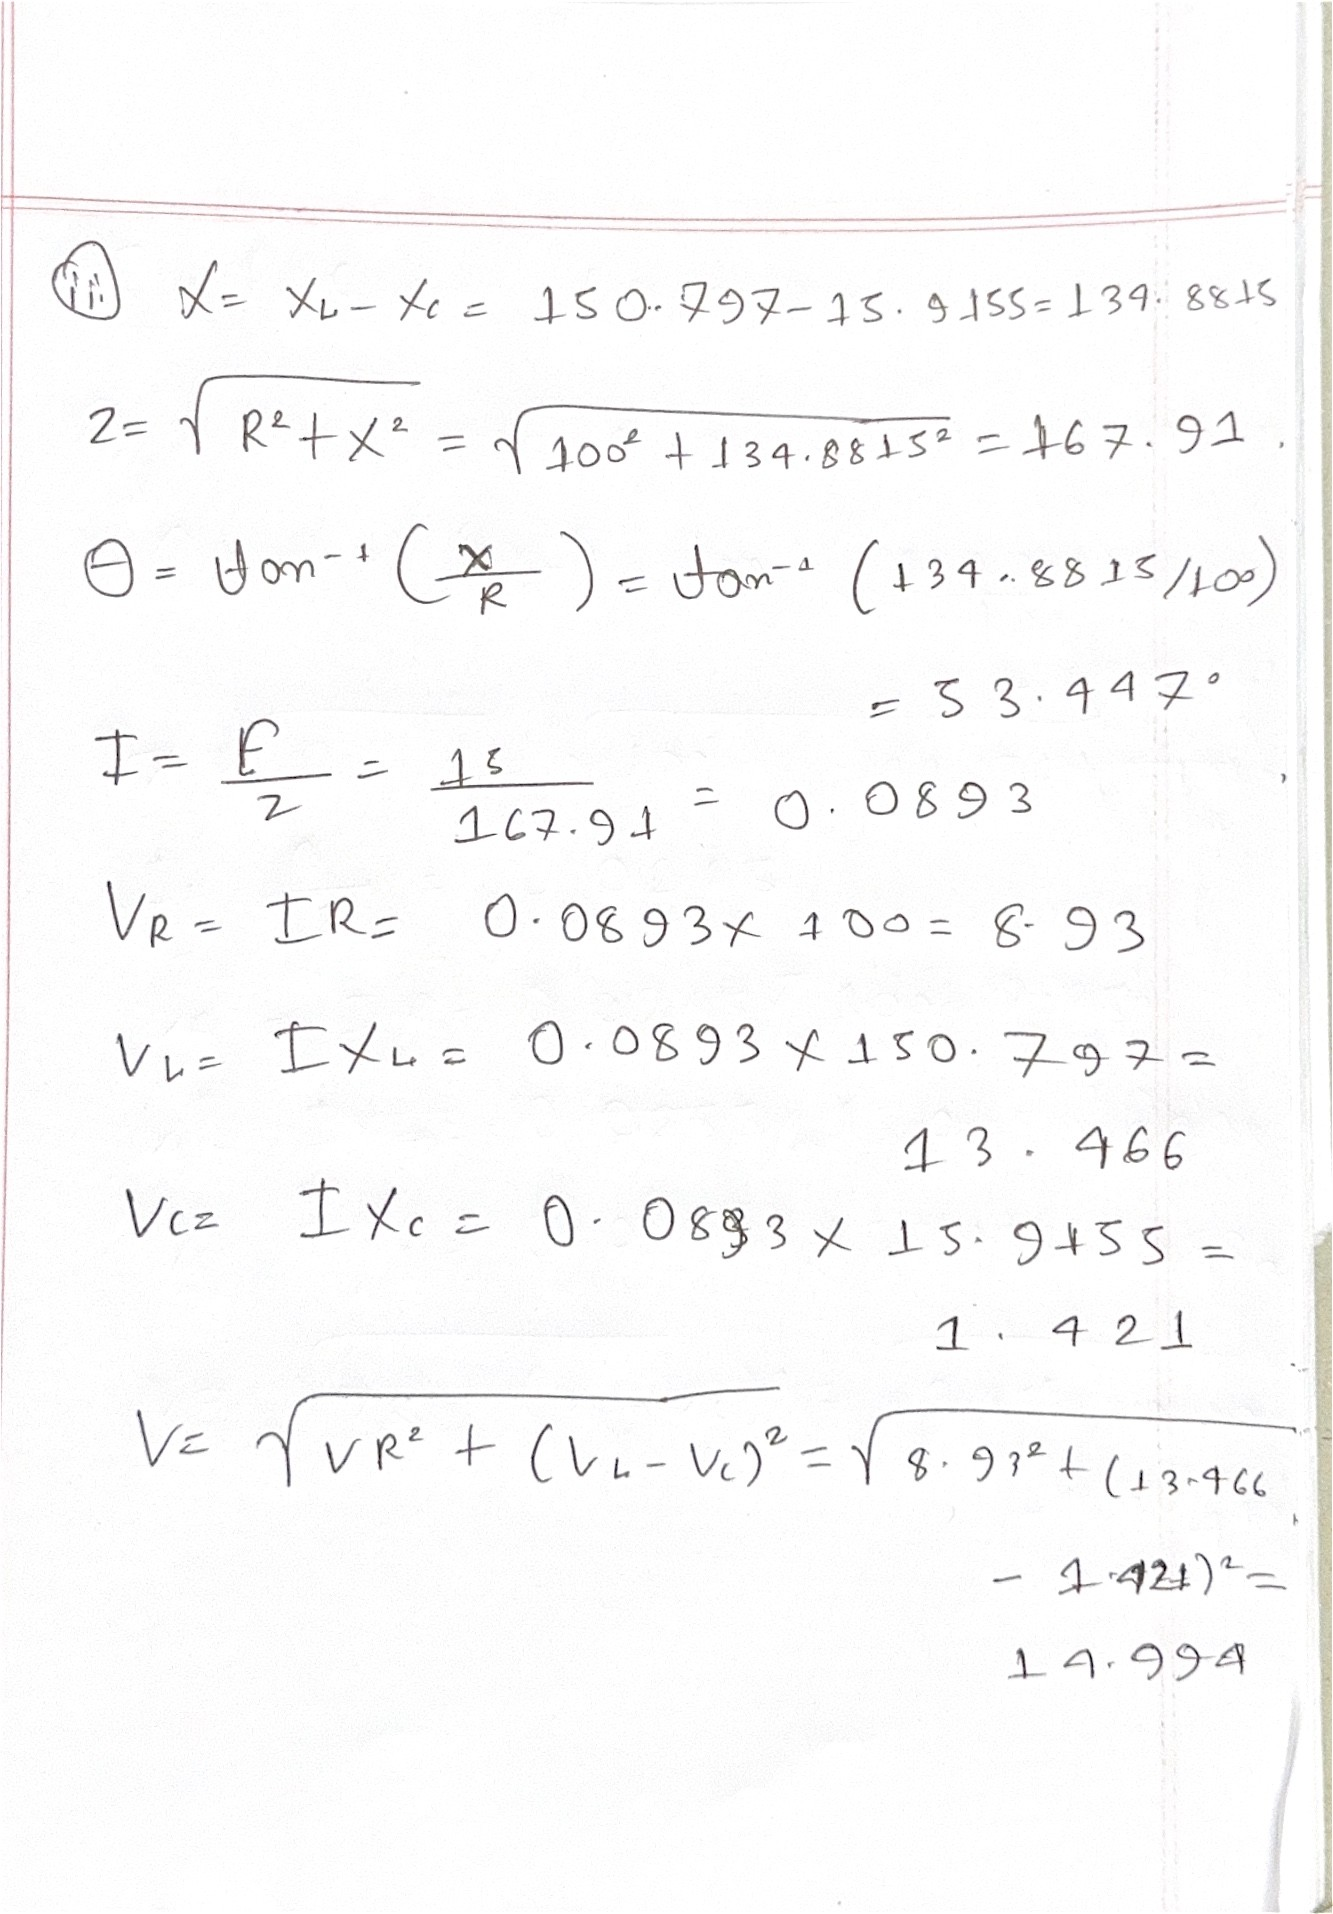 (iii) X= XL - Xc = 150.797-15.9155=134.8815
Z= √R²+X² = √100² + 134.8815² = 167.91
θ = tan⁻¹ (X/R) = tan⁻¹ (134.8815/100)
= 53.447°
I= E/Z = 15/167.91 = 0.0893
VR = IR= 0.0893x 100= 8.93
VL= IXL= 0.0893 x 150.797=
13.466
Vc= IXc = 0.0893 x 15.9155 =
1.421
V= √VR² + (VL-Vc)² = √8.93² + (13.466
- 1.421)² =
14.994